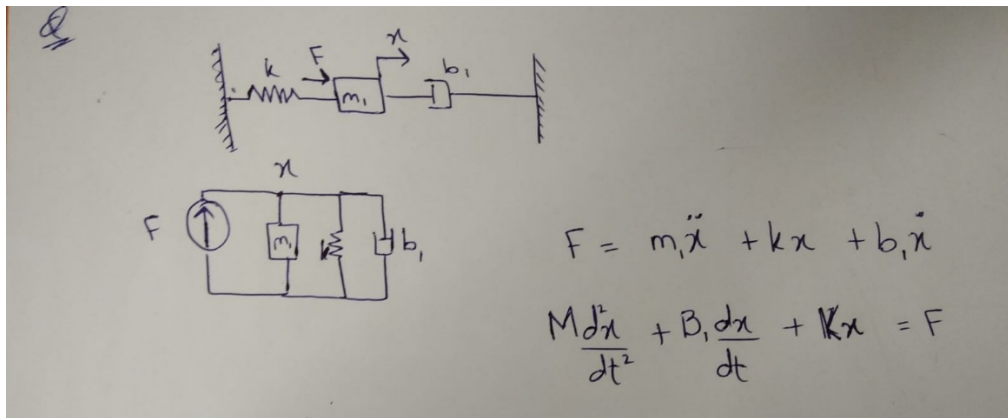 Q
k F x b₁
m₁
x
F m₁ k b₁
F = m₁ẍ + kx + b₁ẋ
M d²x/dt² + B₁ dx/dt + Kx = F